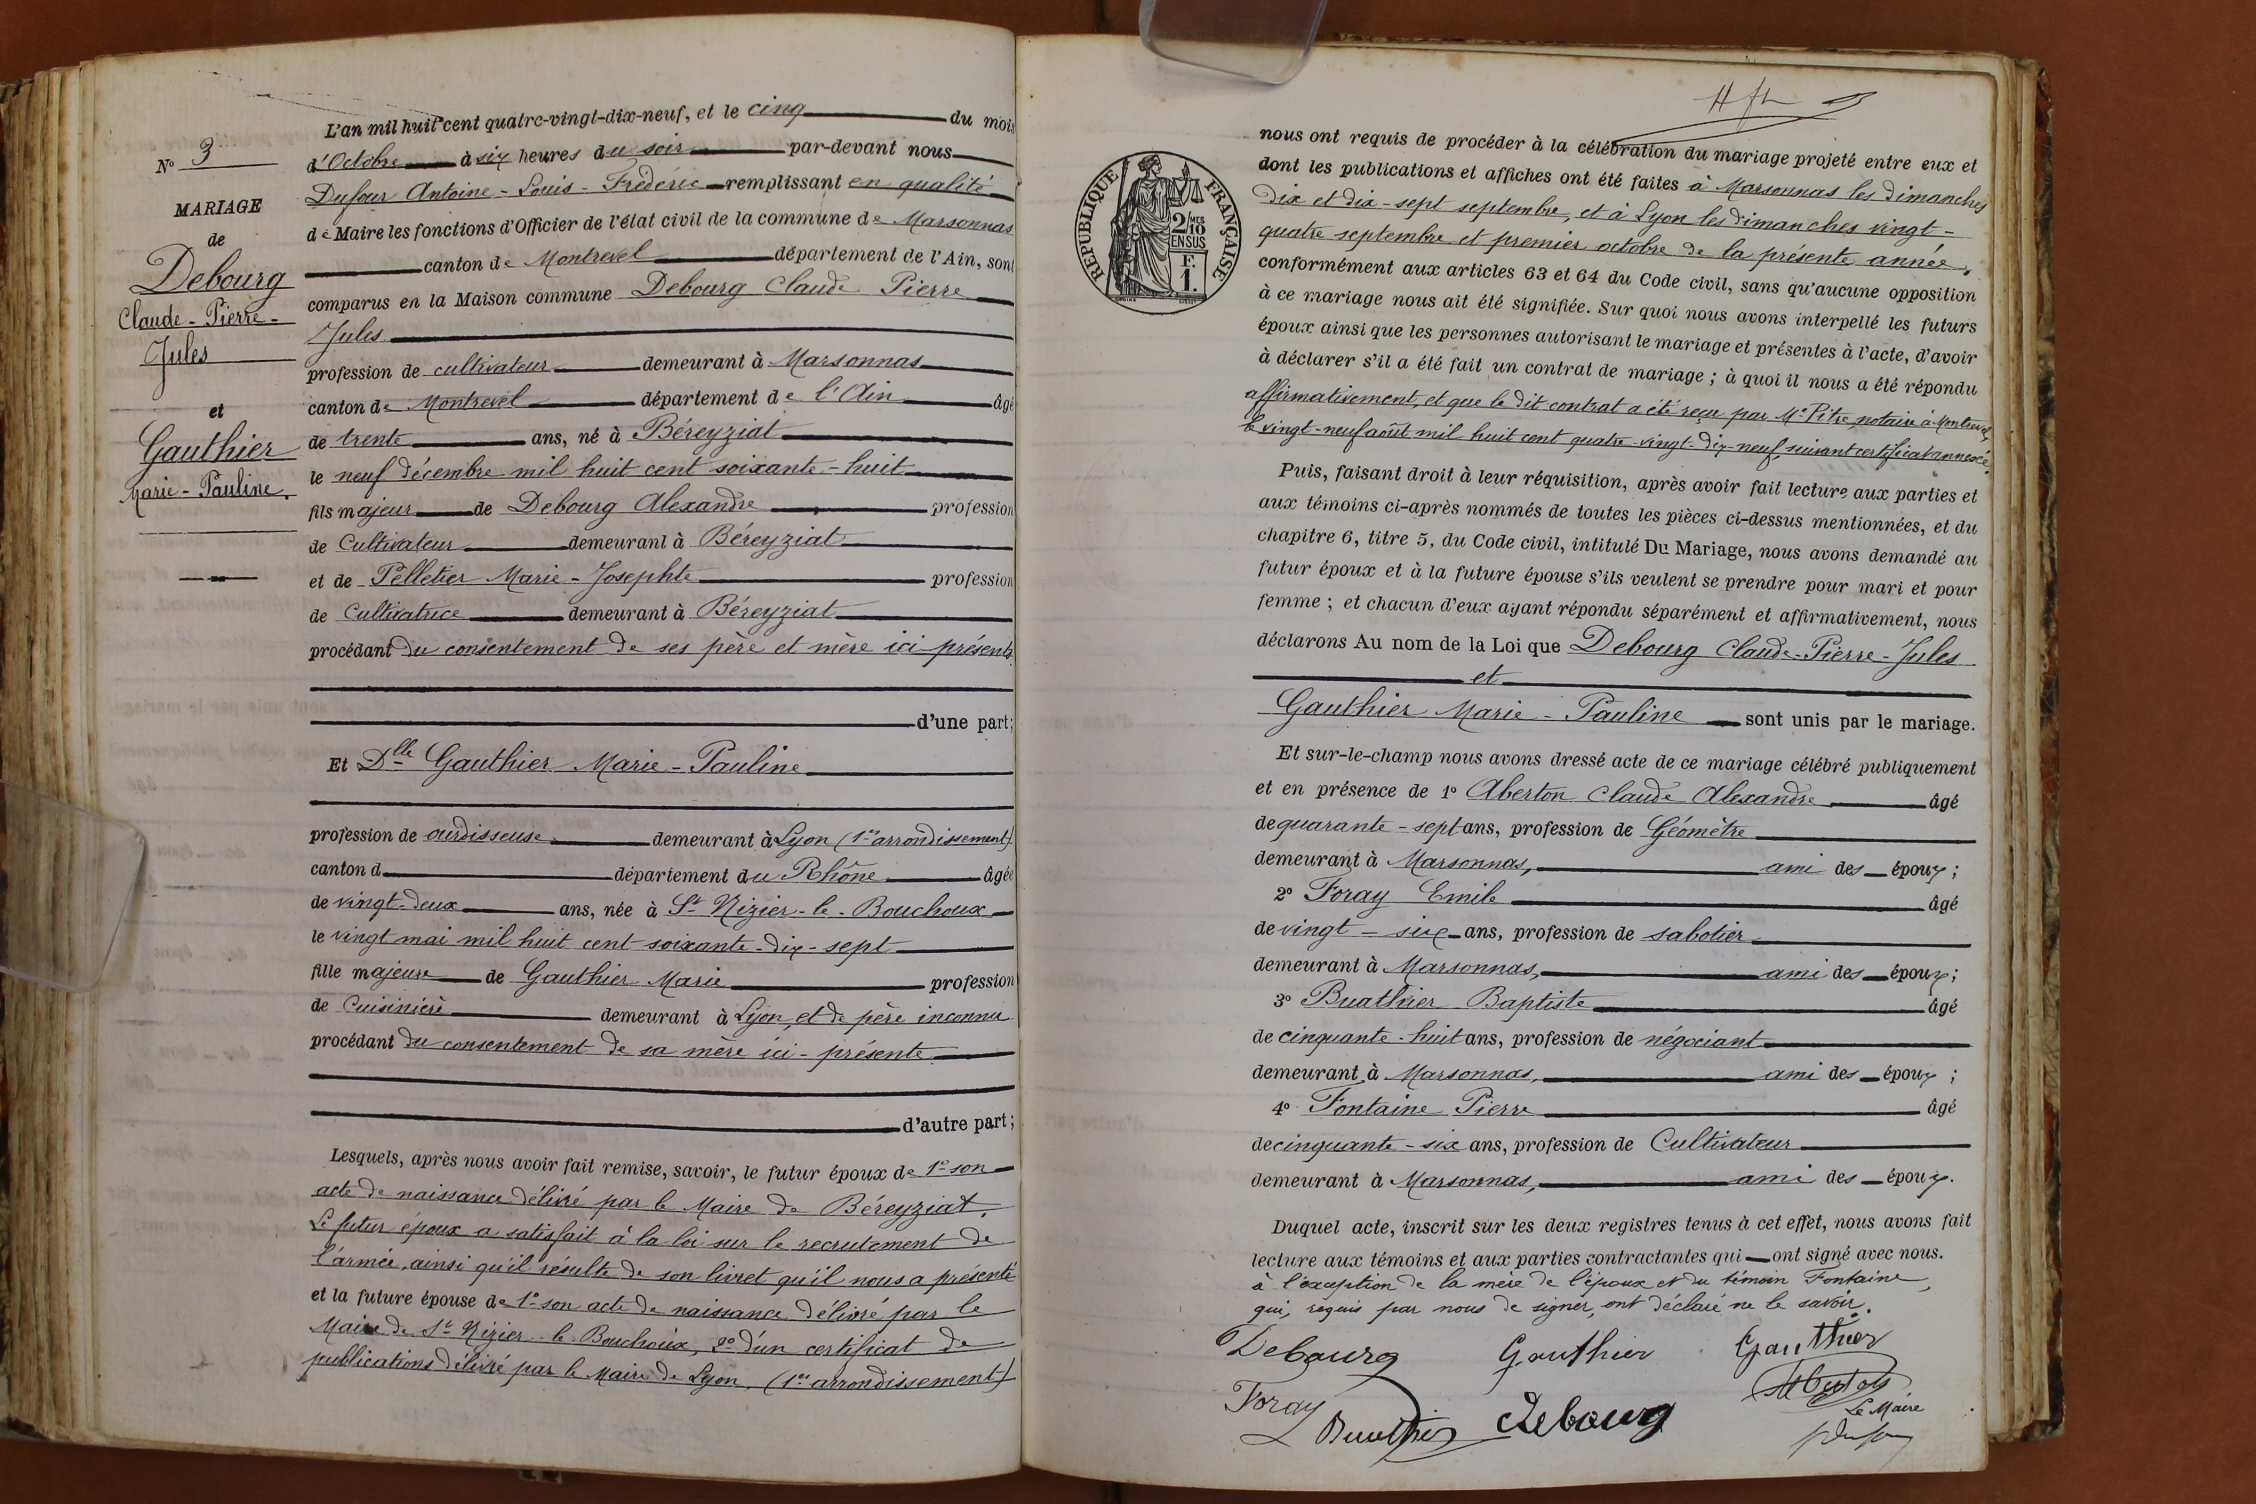 N° 3
MARIAGE
de
Debourg
Claude-Pierre-
Jules
et
Gauthier
Marie-Pauline.
L'an mil huit cent quatre-vingt-dix-neuf, et le cinq du mois
d'Octobre à six heures du soir par-devant nous
Dufour Antoine-Louis-Frédéric remplissant en qualité
de Maire les fonctions d'Officier de l'état civil de la commune de Marsonnas
canton de Montrevel département de l'Ain, sont
comparus en la Maison commune Debourg Claude Pierre
Jules
profession de cultivateur demeurant à Marsonnas
canton de Montrevel département de l'Ain âgé
de trente ans, né à Béreyziat
le neuf décembre mil huit cent soixante-huit
fils majeur de Debourg Alexandre profession
de Cultivateur demeurant à Béreyziat
et de Pelletier Marie-Josephte profession
de Cultivatrice demeurant à Béreyziat
procédant du consentement de ses père et mère ici-présents
d'une part;
Et Dlle Gauthier Marie-Pauline
profession de ourdisseuse demeurant à Lyon (1er arrondissement)
canton d département du Rhône âgée
de vingt-deux ans, née à St Nizier-le-Bouchoux
le vingt mai mil huit cent soixante-dix-sept
fille majeure de Gauthier Marie profession
de Cuisinière demeurant à Lyon, et de père inconnu
procédant du consentement de sa mère ici-présente
d'autre part;
Lesquels, après nous avoir fait remise, savoir, le futur époux de 1° son
acte de naissance délivré par le Maire de Béreyziat.
Le futur époux a satisfait à la loi sur le recrutement de
l'armée, ainsi qu'il résulte de son livret qu'il nous a présenté
et la future épouse de 1° son acte de naissance délivré par le
Maire de St Nizier-le-Bouchoux, 2° d'un certificat de
publications délivré par le Maire de Lyon, (1er arrondissement)
RÉPUBLIQUE FRANÇAISE
2/10 MES
EN SUS
F.
1.
nous ont requis de procéder à la célébration du mariage projeté entre eux et
dont les publications et affiches ont été faites à Marsonnas les dimanches
dix et dix-sept septembre, et à Lyon les dimanches vingt-
quatre septembre et premier octobre de la présente année,
conformément aux articles 63 et 64 du Code civil, sans qu'aucune opposition
à ce mariage nous ait été signifiée. Sur quoi nous avons interpellé les futurs
époux ainsi que les personnes autorisant le mariage et présentes à l'acte, d'avoir
à déclarer s'il a été fait un contrat de mariage ; à quoi il nous a été répondu
affirmativement, et que le dit contrat a été reçu par Me Pitre, notaire à Montrevel,
le vingt-neuf août mil huit cent quatre-vingt-dix-neuf, suivant certificat annexé.
Puis, faisant droit à leur réquisition, après avoir fait lecture aux parties et
aux témoins ci-après nommés de toutes les pièces ci-dessus mentionnées, et du
chapitre 6, titre 5, du Code civil, intitulé Du Mariage, nous avons demandé au
futur époux et à la future épouse s'ils veulent se prendre pour mari et pour
femme ; et chacun d'eux ayant répondu séparément et affirmativement, nous
déclarons Au nom de la Loi que Debourg Claude-Pierre-Jules
et
Gauthier Marie-Pauline sont unis par le mariage.
Et sur-le-champ nous avons dressé acte de ce mariage célébré publiquement
et en présence de 1° Aberton Claude Alexandre âgé
de quarante-sept ans, profession de Géomètre
demeurant à Marsonnas, ami des époux ;
2° Foray Emile âgé
de vingt-six ans, profession de sabotier
demeurant à Marsonnas, ami des époux ;
3° Buathier Baptiste âgé
de cinquante-huit ans, profession de négociant
demeurant à Marsonnas, ami des époux ;
4° Fontaine Pierre âgé
de cinquante-six ans, profession de Cultivateur
demeurant à Marsonnas, ami des époux.
Duquel acte, inscrit sur les deux registres tenus à cet effet, nous avons fait
lecture aux témoins et aux parties contractantes qui ont signé avec nous.
à l'exception de la mère de l'époux et du témoin Fontaine,
qui, requis par nous de signer, ont déclaré ne le savoir.
Debourg Gauthier Gauthier
Foray Buathier Debourg Aberton
Le Maire
Dufour